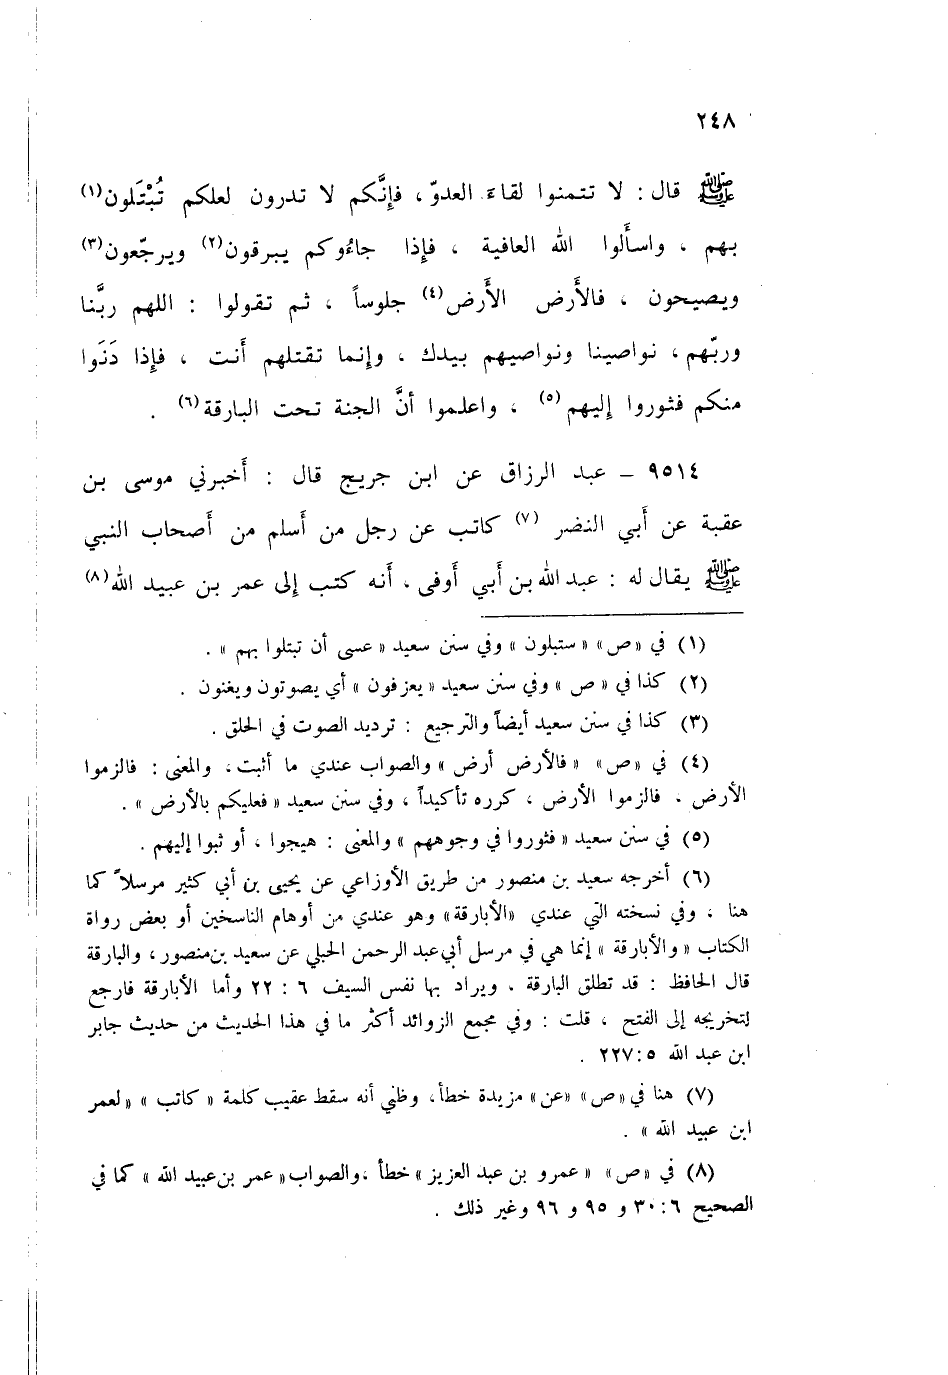 ٢٤٨
ﷺ قال : لا تتمنوا لقاءَ العدوّ ، فإِنَّكم لا تدرون لعلكم تُبْتَلون(١)
بهم ، واسأَلوا الله العافية ، فإِذا جاءُوكم يبرقون(٢) ويرجّعون(٣)
ويصيحون ، فالأَرض الأَرض(٤) جلوساً ، ثم تقولوا : اللهم ربَّنا
وربّهم ، نواصينا ونواصيهم بيدك ، وإِنما تقتلهم أَنت ، فإِذا دَنَوا
منكم فثوروا إِليهم(٥) ، واعلموا أنَّ الجنة تحت البارقة(٦) .
٩٥١٤ – عبد الرزاق عن ابن جريج قال : أَخبرني موسى بن
عقبة عن أَبي النضر (٧) كاتب عن رجل من أَسلم من أَصحاب النبي
ﷺ يقال له : عبد الله بن أَبي أَوفى ، أَنه كتب إِلى عمر بن عبيد الله(٨)
(١) في «ص» «ستبلون» وفي سنن سعيد «عسى أن تبتلوا بهم» .
(٢) كذا في «ص» وفي سنن سعيد «يعزفون» أي يصوتون ويغنون .
(٣) كذا في سنن سعيد أيضاً والترجيع : ترديد الصوت في الحلق .
(٤) في «ص» «فالأرض أرض» والصواب عندي ما أثبت، والمعنى : فالزموا
الأرض ، فالزموا الأرض ، كرره تأكيداً ، وفي سنن سعيد «فعليكم بالأرض» .
(٥) في سنن سعيد «فثوروا في وجوههم» والمعنى : هيجوا ، أو ثبوا إليهم .
(٦) أخرجه سعيد بن منصور من طريق الأوزاعي عن يحيى بن أبي كثير مرسلاً كما
هنا ، وفي نسخته التي عندي «الأبارقة» وهو عندي من أوهام الناسخين أو بعض رواة
الكتاب «والأبارقة» إنما هي في مرسل أبي عبد الرحمن الحبلي عن سعيد بن منصور ، والبارقة
قال الحافظ : قد تطلق البارقة ، ويراد بها نفس السيف ٦ : ٢٢ وأما الأبارقة فارجع
لتخريجه إلى الفتح ، قلت : وفي مجمع الزوائد أكثر ما في هذا الحديث من حديث جابر
ابن عبد الله ٥ :٢٢٧ .
(٧) هنا في «ص» «عن» مزيدة خطأ، وظني أنه سقط عقيب كلمة «كاتب» «لعمر
ابن عبيد الله» .
(٨) في «ص» «عمرو بن عبد العزيز» خطأ ،والصواب «عمر بن عبيد الله» كما في
الصحيح ٦ :٣٠ و ٩٥ و ٩٦ وغير ذلك .